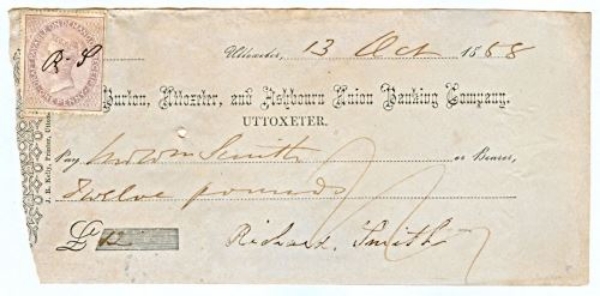 Uttoxeter, 13 Oct 1858
B.S
Burton, Uttoxeter, and Ashbourn Union Banking Company.
UTTOXETER.
Pay Wm Smith or Bearer,
Twelve pounds
£ 12
Richard Smith
J. R. Kelly, Printer, Uttox